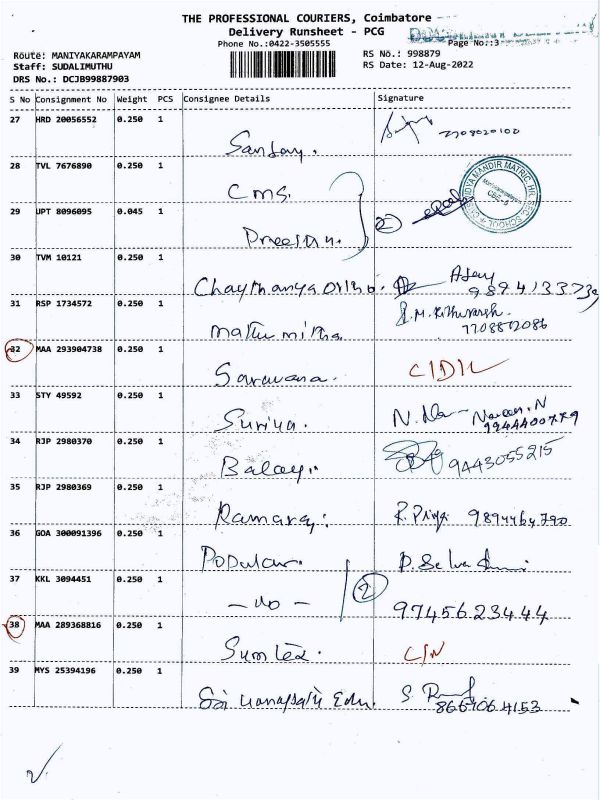 THE PROFESSIONAL COURIERS, Coimbatore
Delivery Runsheet - PCG
Phone No.:0422-3505555
Page No.:3
Route: MANIYAKARAMPAYAM
RS No.: 998879
Staff: SUDALIMUTHU
RS Date: 12-Aug-2022
DRS No.: DCJB99887903
S No Consignment No Weight PCS Consignee Details Signature
27 HRD 20056552 0.250 1
Sanjay.
28 TVL 7676890 0.250 1
Cms.
29 UPT 8096095 0.045 1
Preethi.
2
30 TVM 10121 0.250 1
Chaythanya Ortho. Ajay
31 RSP 1734572 0.250 1
Mathu mitha
7708872086
32 MAA 293904738 0.250 1
Saravana.
33 STY 49592 0.250 1
Suriya. Naveen.N
9944400779
34 RJP 2980370 0.250 1
Balaji. 9443055215
35 RJP 2980369 0.250 1
Ramaraj. R. Priya 9894464790
36 GOA 300091396 0.250 1
Popular.
37 KKL 3094451 0.250 1
- do - 2 9745623444
38 MAA 289368816 0.250 1
39 MYS 25394196 0.250 1
Sri Ganapathi Edu.